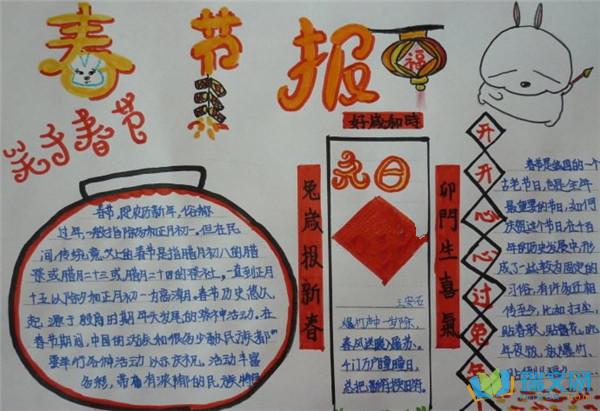 春节报
福
关于春节
春节,即农历新年,俗称
过年,一般指除夕和正月初一。但在民
间传统意义上的春节是指腊月初八的腊
祭或腊月二十三或腊月二十四的祭社。一直到正月
十五以除夕和正月初一为高潮日。春节历史悠久
起源于殷商时期年头岁尾的祭神活动。在
春节期间,中国的汉族和很多少数民族都
要举行各种活动以示庆祝。活动丰富
多彩,带有浓郁的民族特
好歲和時
兔歲报新春
卯門生喜氣
元日
王安石
爆竹声中一岁除,
春风送暖入屠苏。
千门万户曈曈日,
总把新桃换旧符。
开开心心过兔年
春节是我国的一个
古老节日,也是全年
最重要的节日,如何
庆祝这个节日,在千
年的历史发展中,形
成了一些较为固定的
习俗,有许多还相
传至今。比如扫尘,
贴春联,贴窗花,吃
年夜饭,放爆竹、
瑞文网